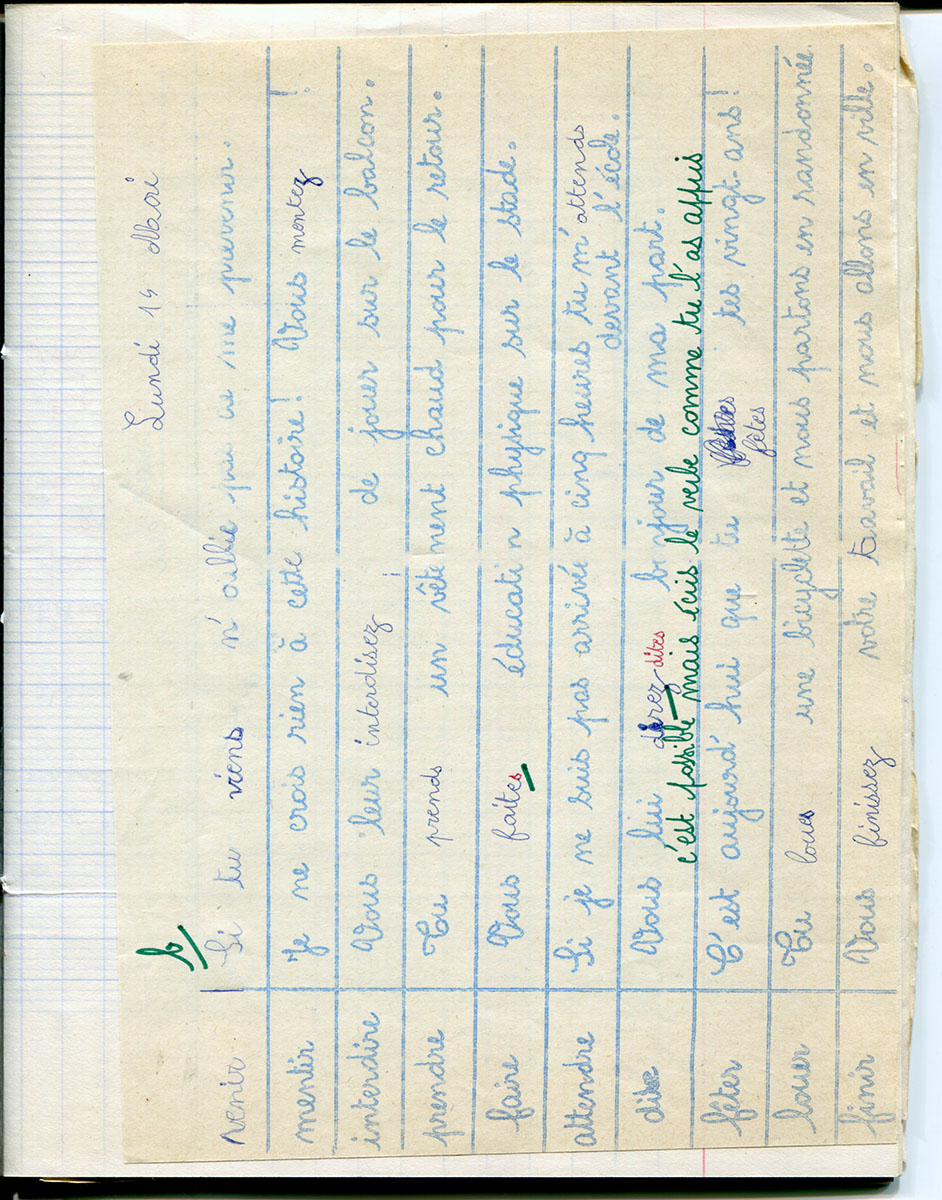 Lundi 19 Mai
b
venir Si tu viens n'oublie pas de me prévenir.
mentir Je ne crois rien à cette histoire! Vous montez !
interdire Vous leur interdisez de jouer sur le balcon.
prendre Tu prends un vêtement chaud pour le retour.
faire Vous faites éducati n physique sur le stade.
attendre Si je ne suis pas arrivée à cinq heures tu m'attends
devant l'école.
dire Vous lui direz dites bonjour de ma part.
c'est possible mais écris le verbe comme tu l'as appris
fêter C'est aujourd'hui que tu fêtes tes vingt-ans!
louer Tu loues une bicyclette et nous partons en randonnée.
finir Vous finissez votre travail et nous allons en ville.